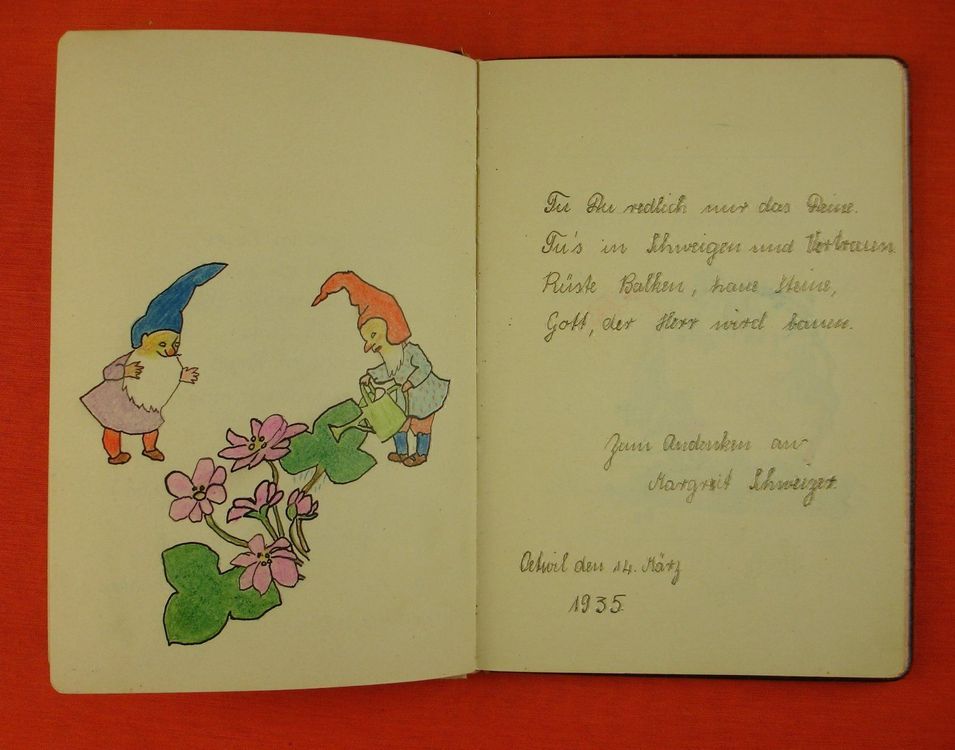 Tu Du redlich nur das Deine.
Tu's in Schweigen und Vertraun.
Rüste Balken, haue Steine,
Gott, der Herr wird bauen.
Zum Andenken an
Margreit Schweizer.
Oetwil den 14. März
1935.